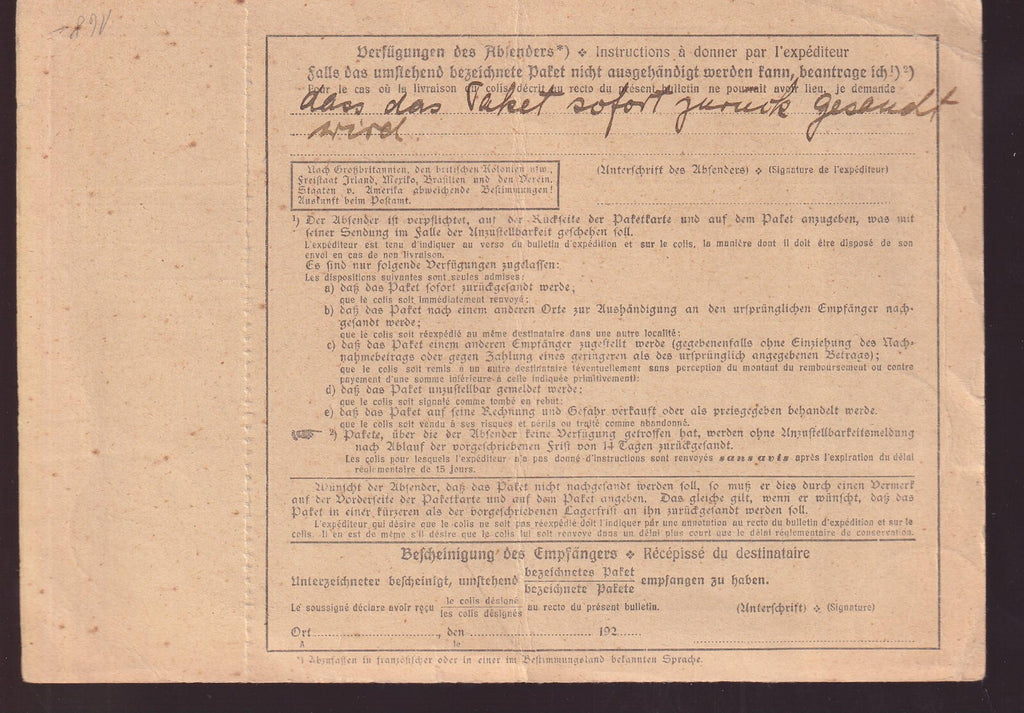 Verfügungen des Absenders*) ✥ Instructions à donner par l'expéditeur
Falls das umstehend bezeichnete Paket nicht ausgehändigt werden kann, beantrage ich¹)²)
Pour le cas où la livraison du colis décrit au recto du présent bulletin ne pourrait avoir lieu, je demande
dass das Paket sofort zurück gesandt
wird
Nach Großbritannien, den britischen Kolonien usw.,
Freistaat Irland, Mexiko, Brasilien und den Verein.
Staaten v. Amerika abweichende Bestimmungen!
Auskunft beim Postamt.
(Unterschrift des Absenders) ✥ (Signature de l'expéditeur)
¹) Der Absender ist verpflichtet, auf der Rückseite der Paketkarte und auf dem Paket anzugeben, was mit
seiner Sendung im Falle der Unzustellbarkeit geschehen soll.
L'expéditeur est tenu d'indiquer au verso du bulletin d'expédition et sur le colis, la manière dont il doit être disposé de son
envoi en cas de non livraison.
Es sind nur folgende Verfügungen zugelassen:
Les dispositions suivantes sont seules admises:
a) daß das Paket sofort zurückgesandt werde;
que le colis soit immédiatement renvoyé;
b) daß das Paket nach einem anderen Orte zur Aushändigung an den ursprünglichen Empfänger nach-
gesandt werde;
que le colis soit réexpédié au même destinataire dans une autre localité;
c) daß das Paket einem anderen Empfänger zugestellt werde (gegebenenfalls ohne Einziehung des Nach-
nahmebetrags oder gegen Zahlung eines geringeren als des ursprünglich angegebenen Betrags);
que le colis soit remis à un autre destinataire (éventuellement sans perception du montant du remboursement ou contre
payement d'une somme inférieure à celle indiquée primitivement);
d) daß das Paket unzustellbar gemeldet werde;
que le colis soit signalé comme tombé en rebut;
e) daß das Paket auf seine Rechnung und Gefahr verkauft oder als preisgegeben behandelt werde.
que le colis soit vendu à ses risques et périls ou traité comme abandonné.
²) Pakete, über die der Absender keine Verfügung getroffen hat, werden ohne Unzustellbarkeitsmeldung
nach Ablauf der vorgeschriebenen Frist von 14 Tagen zurückgesandt.
Les colis pour lesquels l'expéditeur n'a pas donné d'instructions sont renvoyés sans avis après l'expiration du délai
réglementaire de 15 jours.
Wünscht der Absender, daß das Paket nicht nachgesandt werden soll, so muß er dies durch einen Vermerk
auf der Vorderseite der Paketkarte und auf dem Paket angeben. Das gleiche gilt, wenn er wünscht, daß das
Paket in einer kürzeren als der vorgeschriebenen Lagerfrist an ihn zurückgesandt werden soll.
L'expéditeur qui désire que le colis ne soit pas réexpédié doit l'indiquer par une annotation au recto du bulletin d'expédition et sur le
colis. Il en est de même s'il désire que le colis lui soit renvoyé dans un délai plus court que le délai réglementaire de conservation.
Bescheinigung des Empfängers ✥ Récépissé du destinataire
Unterzeichneter bescheinigt, umstehend bezeichnetes Paket / bezeichnete Pakete empfangen zu haben.
Le soussigné déclare avoir reçu le colis désigné / les colis désignés au recto du présent bulletin.
(Unterschrift) ✥ (Signature)
Ort , den 192
A le
*) Abzufassen in französischer oder in einer im Bestimmungsland bekannten Sprache.